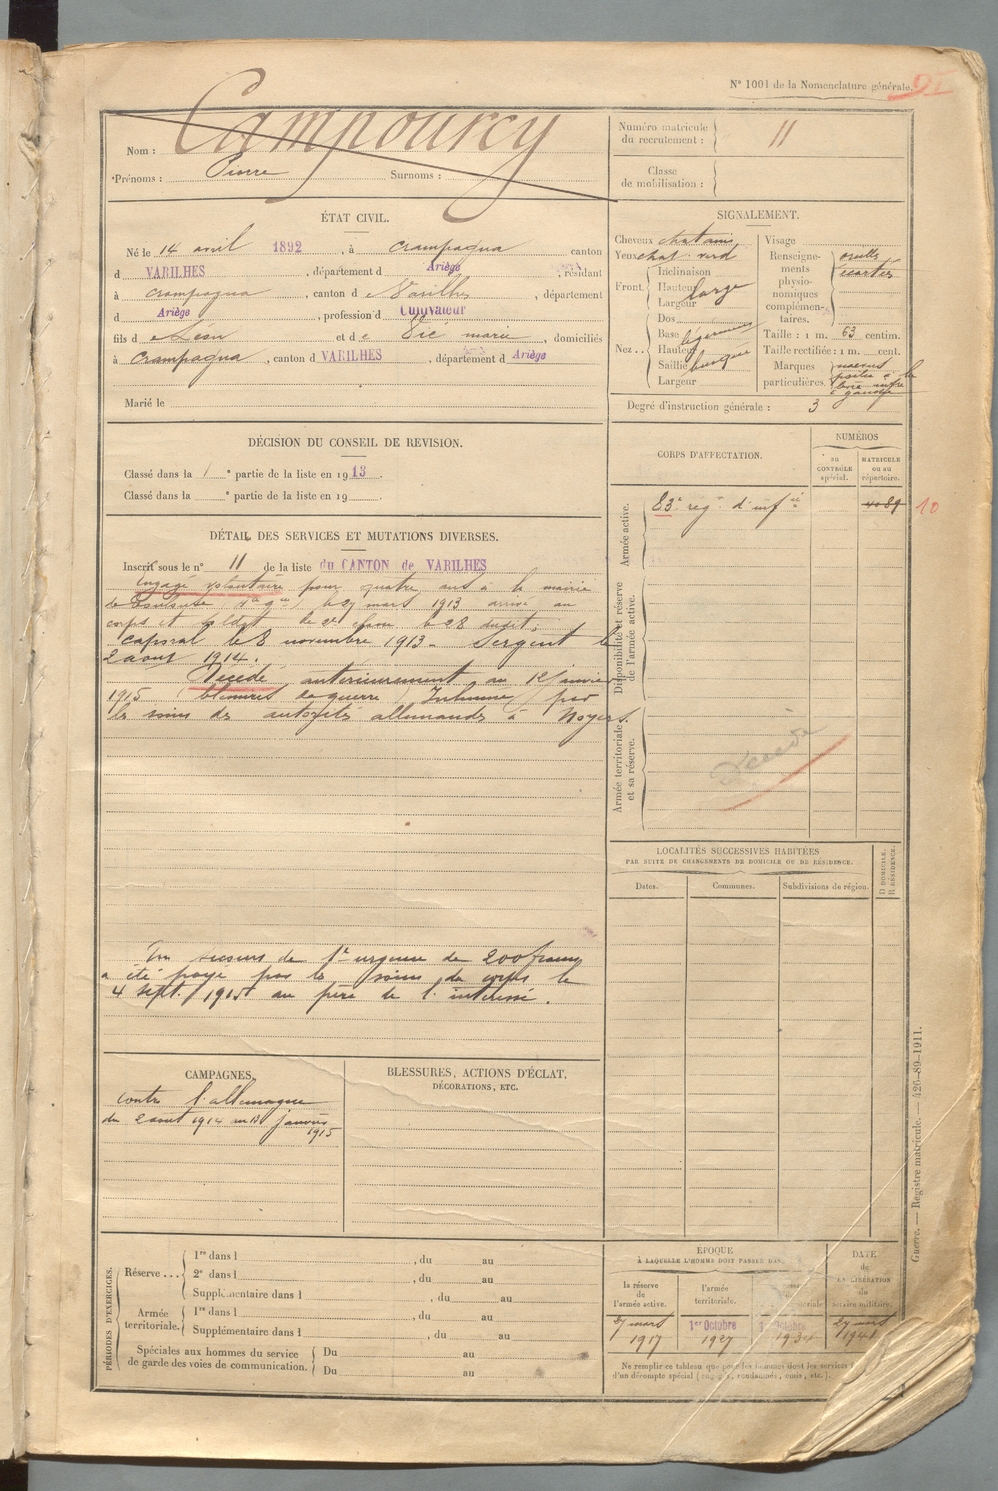 N° 1001 de la Nomenclature générale.
Nom : Campourcy
Prénoms : Pierre Surnoms :
Numéro matricule du recrutement : 11
Classe de mobilisation :
ÉTAT CIVIL.
Né le 14 avril 1892, à Crampagna canton
d VARILHES, département d Ariège, résidant
à Crampagna, canton d Varilhes, département
d Ariège, profession d Cultivateur
fils d Léon et d e Vié marie, domiciliés
à Crampagna, canton d VARILHES, département d Ariège
Marié le
SIGNALEMENT.
Cheveux chatains
Yeux chat. verd
Front. Inclinaison
Hauteur
Largeur large
Nez.. Dos
Base
Hauteur
Saillie busqué
Largeur
Visage
Renseignements physionomiques complémentaires. oreilles écartées
Taille : 1 m. 63 centim.
Taille rectifiée : 1 m. cent.
Marques particulières. à gauche
Degré d'instruction générale : 3
DÉCISION DU CONSEIL DE REVISION.
Classé dans la 1e partie de la liste en 1913.
Classé dans la e partie de la liste en 19 .
CORPS D'AFFECTATION.
NUMÉROS
au CONTRÔLE spécial.
MATRICULE ou au répertoire.
Armée active.
83e rég. d'infie 4089 10
Disponibilité et réserve de l'armée active.
Armée territoriale et sa réserve.
Décédé
DÉTAIL DES SERVICES ET MUTATIONS DIVERSES.
Inscrit sous le n° 11 de la liste du CANTON de VARILHES
Engagé volontaire pour quatre ans à la mairie
de Toulouse le 27 mars 1913 arrivé au
corps et soldat de 2e classe le 28 dudit;
caporal le 8 novembre 1913. Sergent le
2 aout 1914.
Décédé antérieurement au 12 janvier
1915 (blessures de guerre) Inhumé par
les soins des autorités allemandes à Noyers.
Un secours de 1e urgence de 200 francs
a été payé par les soins du corps le
4 sept. 1915 au père de l'intéressé.
LOCALITÉS SUCCESSIVES HABITÉES
PAR SUITE DE CHANGEMENTS DE DOMICILE OU DE RÉSIDENCE.
Dates. Communes. Subdivisions de région. D DOMICILE. R RÉSIDENCE.
CAMPAGNES.
Contre l'allemagne
du 2 aout 1914 au 12 janvier
1915
BLESSURES, ACTIONS D'ÉCLAT,
DÉCORATIONS, ETC.
PÉRIODES D'EXERCICES.
Réserve ... 1re dans l , du au
2e dans l , du au
Supplémentaire dans l , du au
Armée territoriale. 1re dans l , du au
Supplémentaire dans l , du au
Spéciales aux hommes du service de garde des voies de communication. Du au
Du au
ÉPOQUE
À LAQUELLE L'HOMME DOIT PASSER DANS
la réserve de l'armée active.
l'armée territoriale.
DATE de LA LIBÉRATION du service militaire.
27 mars 1917
1er Octobre 1927
1er Octobre 1934
27 mars 1941
Ne remplir ce tableau que pour les hommes dont les services
d'un décompte spécial (engagés, condamnés, omis, etc.).
Guerre. — Registre matricule. — 426-89-1911.